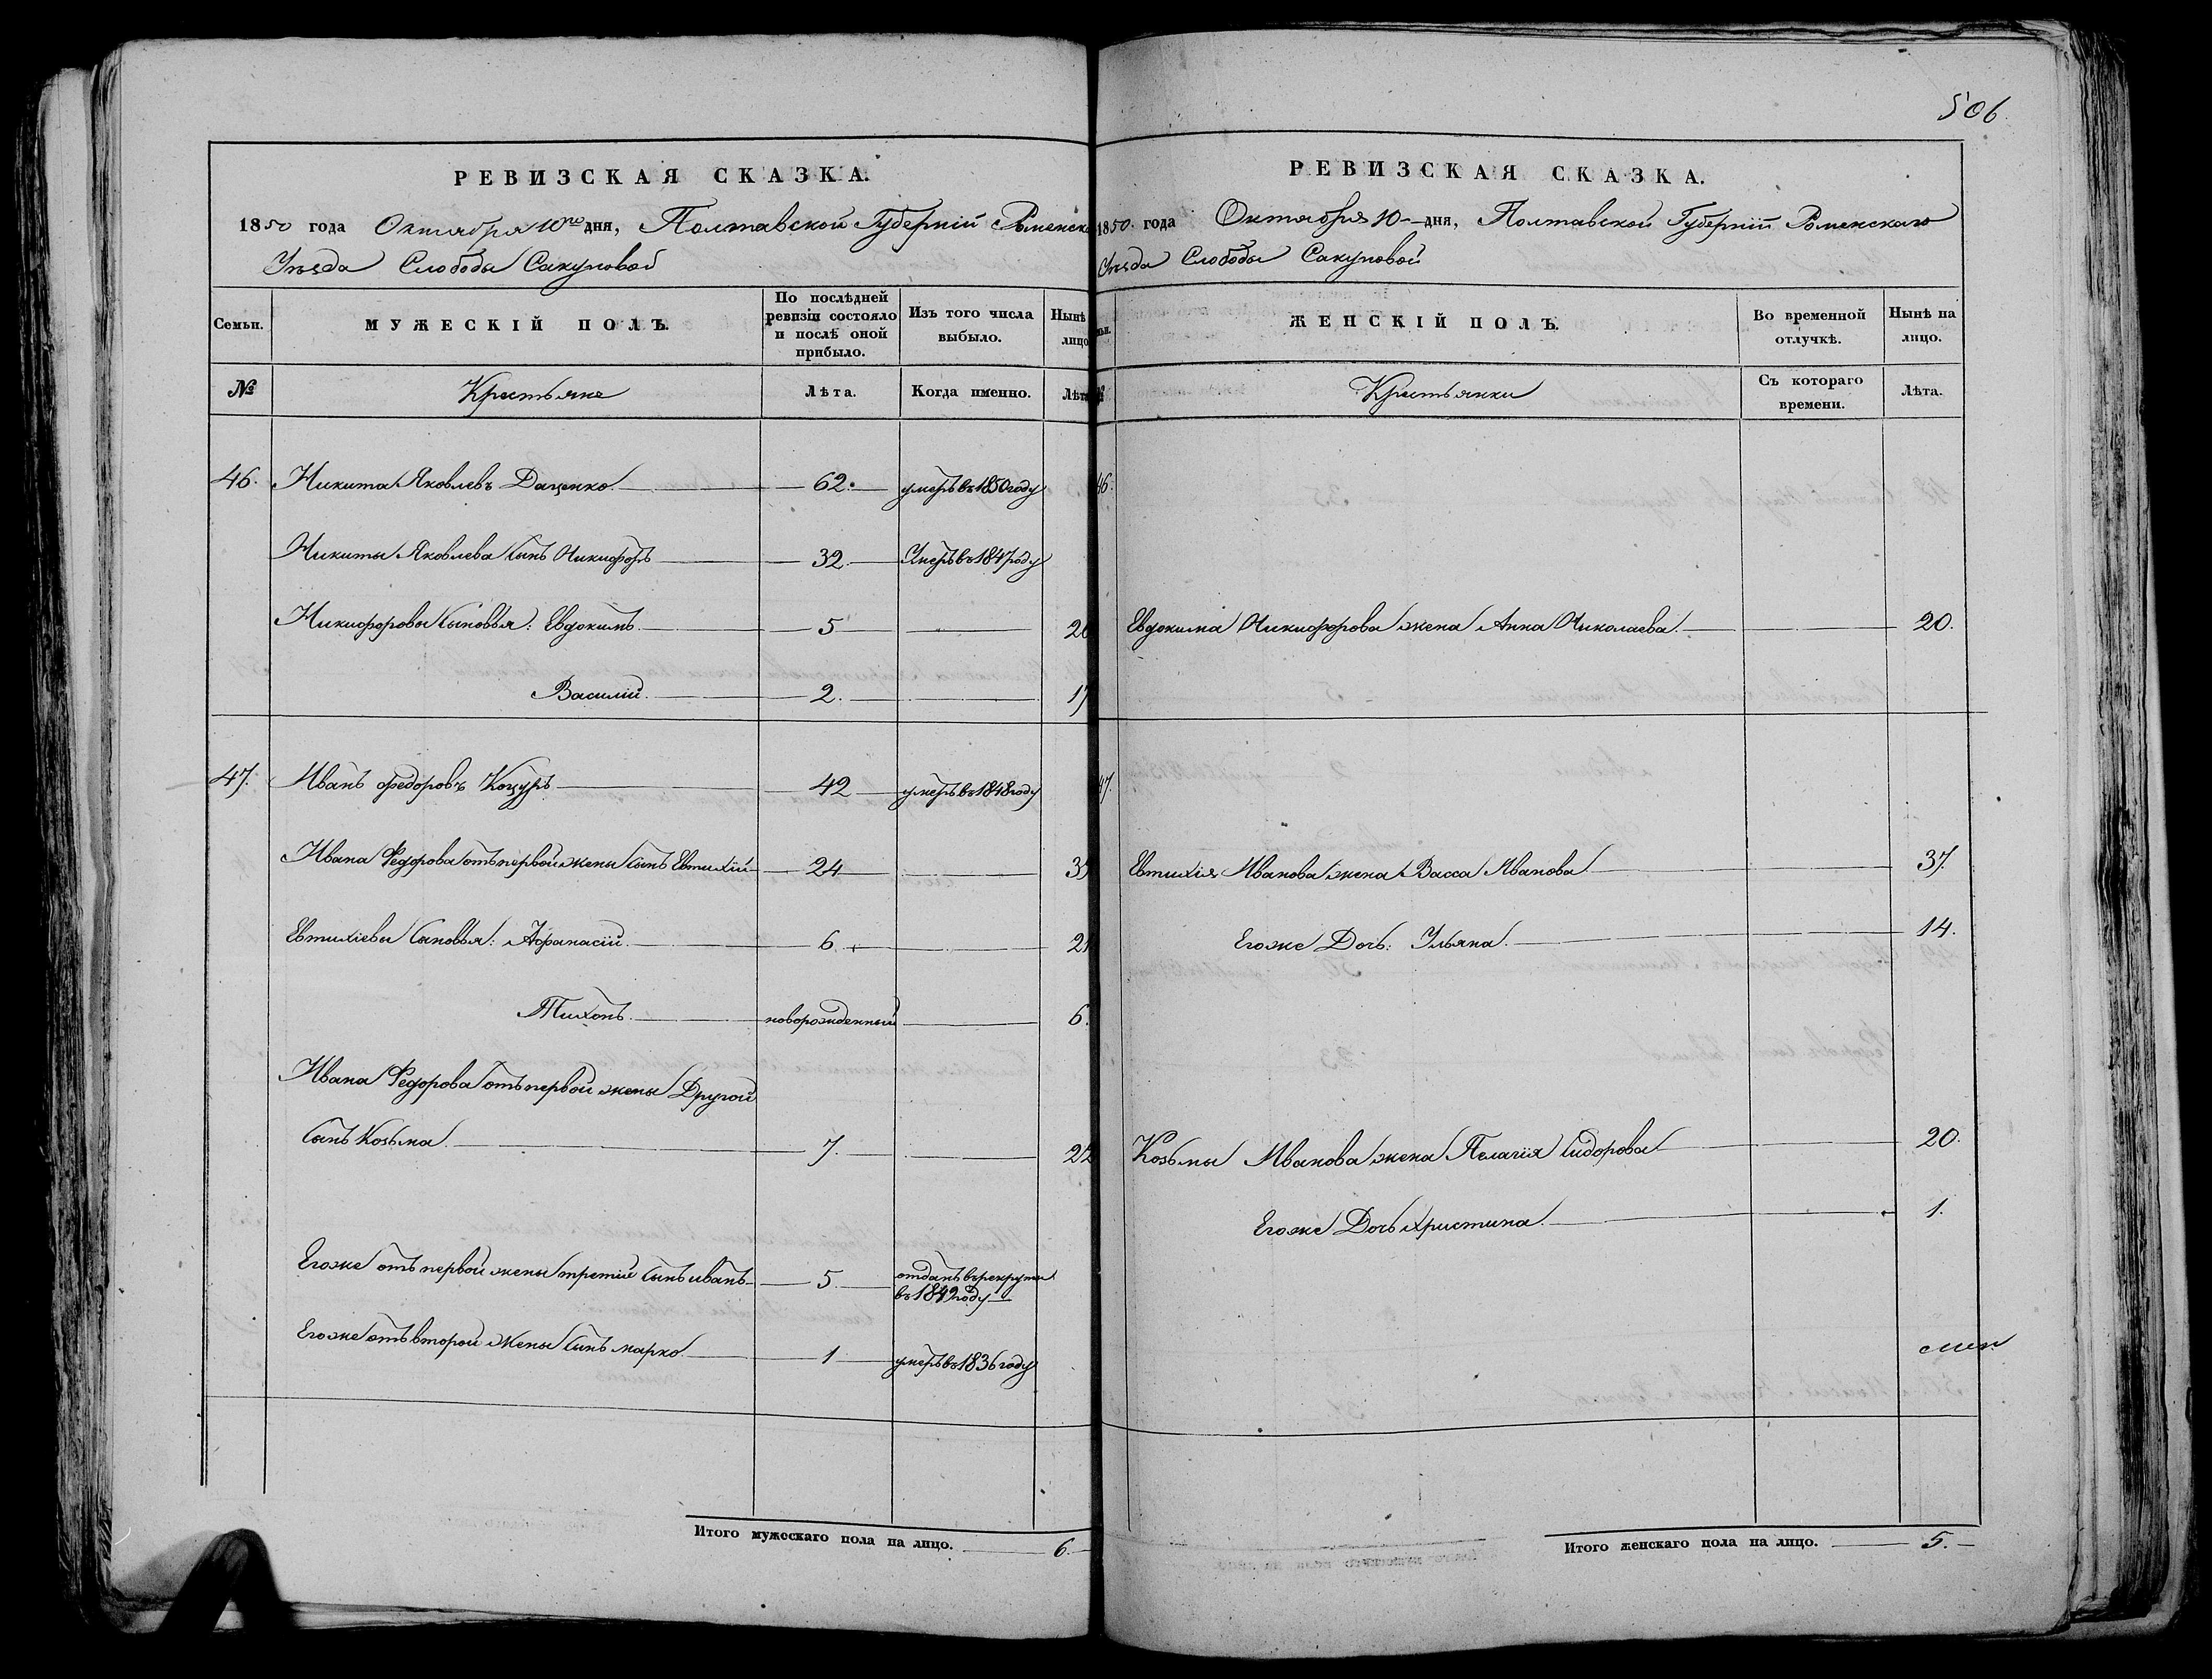 РЕВИЗСКАЯ СКАЗКА.
1850 года Октября 10го дня, Полтавской Губерніи Роменск
Уѣзда Слободы Сакуновой
Семьи. МУЖЕСКІЙ ПОЛЪ. По послѣдней ревизіи состояло и послѣ оной прибыло. Изъ того числа выбыло. Нынѣ лицо
№ Крестьяне Лѣта. Когда именно. Лѣта
46. Никита Яковлевъ Даценко 62. умеръ въ 1850 году
Никиты Яковлева Сынъ Никифоръ 32 Умеръ въ 1847 году
Никифоровы Сыновья: Евдокимъ 5 20
Василій 2. 17
47. Иванъ Федоровъ Коцуръ 42 умеръ въ 1848 году
Ивана Федорова отъ первой жены Сынъ Евтихій 24
Евтихіевы Сыновья: Афанасій 6. 21
Тихонъ новорожденный 6.
Ивана Федорова отъ первой жены Другой
Сынъ Козьма 7. 22
Егоже отъ первой жены третій Сынъ иванъ 5. отданъ въ рекруты
въ 1849 году
Егоже отъ второй жены Сынъ марко 1 умеръ въ 1836 году
Итого мужескаго пола на лицо. 6.
506.
РЕВИЗСКАЯ СКАЗКА.
1850. года Октября 10 дня, Полтавской Губерніи Роменскаго
Уѣзда Слободы Сакуновой
ЖЕНСКІЙ ПОЛЪ. Во временной отлучкѣ. Нынѣ на лицо.
Крестьянки Съ котораго времени. Лѣта.
46.
Евдокима Никифорова жена Анна Николаева 20.
47.
Евтихія Иванова жена Васса Иванова 37.
Егоже Дочь: Ульяна. 14.
Козьмы Иванова жена Пелагія Сидорова 20.
Егоже Дочь Христина. 1.
Итого женскаго пола на лицо. 5.